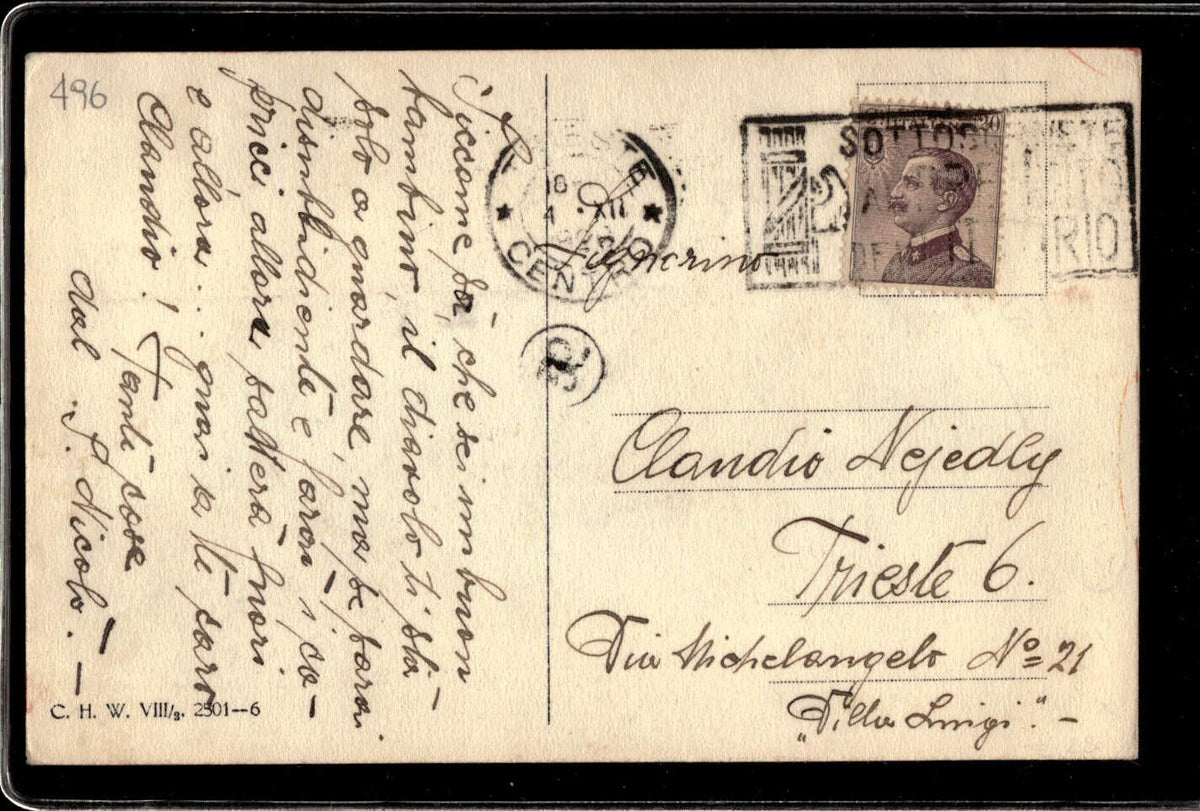 496
Siccome sa, che sei un buon
bambino, il diavolo ti sta
solo a guardare, ma se sarai
disubbidiente e farai i ca-
pricci allora salterà fuori
e allora... guai a te caro
Claudio! Tante cose
dal S. Nicolò. —
C. H. W. VIII/2. 2501--6
TRIESTE
CENTRO
XII
SOTTOSCRIVETE
Signorino
Claudio Nejedly
Trieste 6.
Via Michelangelo No 21
„Villa Luigi". -